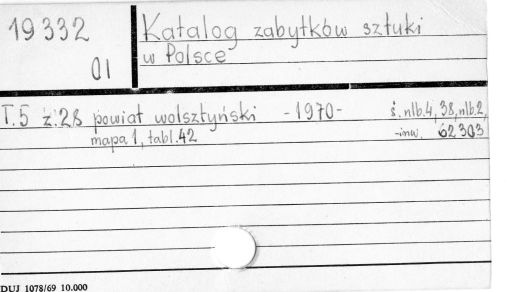 19332 Katalog zabytków sztuki
01 w Polsce
T.5 z.28 powiat wolsztyński -1970- ś. nlb.4, 38, nlb.2,
mapa 1, tabl.42 -inw. 62303
DUJ 1078/69 10.000